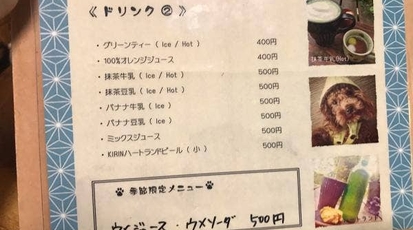 《ドリンク②》
・グリーンティー ( Ice / Hot ) 400円
・100%オレンジジュース 400円
・抹茶牛乳 ( Ice / Hot ) 500円
・抹茶豆乳 ( Ice / Hot ) 500円
・バナナ牛乳 ( Ice ) 500円
・バナナ豆乳 ( Ice ) 500円
・ミックスジュース 500円
・KIRINハートランドビール ( 小 ) 500円
抹茶牛乳(Hot)
季節限定メニュー
ウメジュース・ウメソーダ 500円